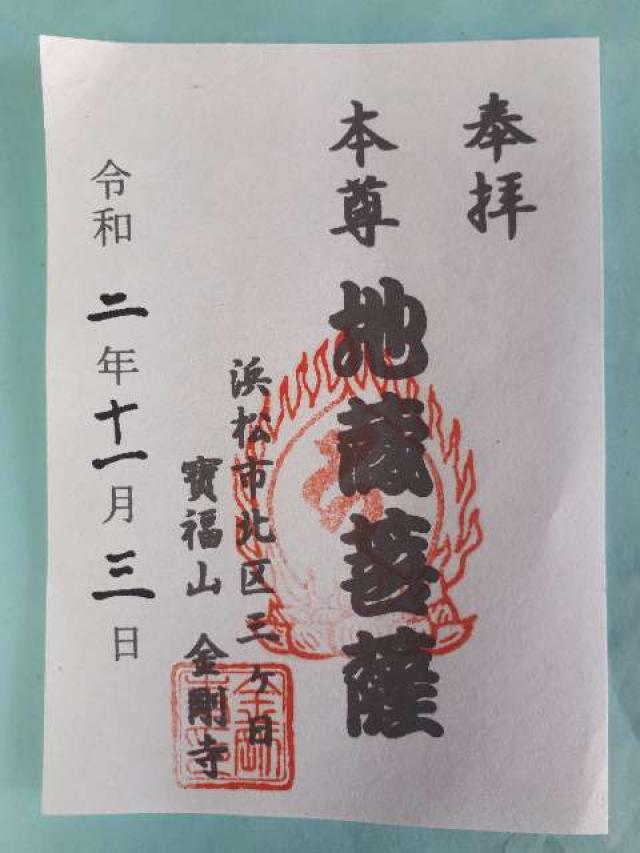 奉拝
本尊 地蔵菩薩
浜松市北区三ヶ日
寳福山 金剛寺
令和二年十一月三日